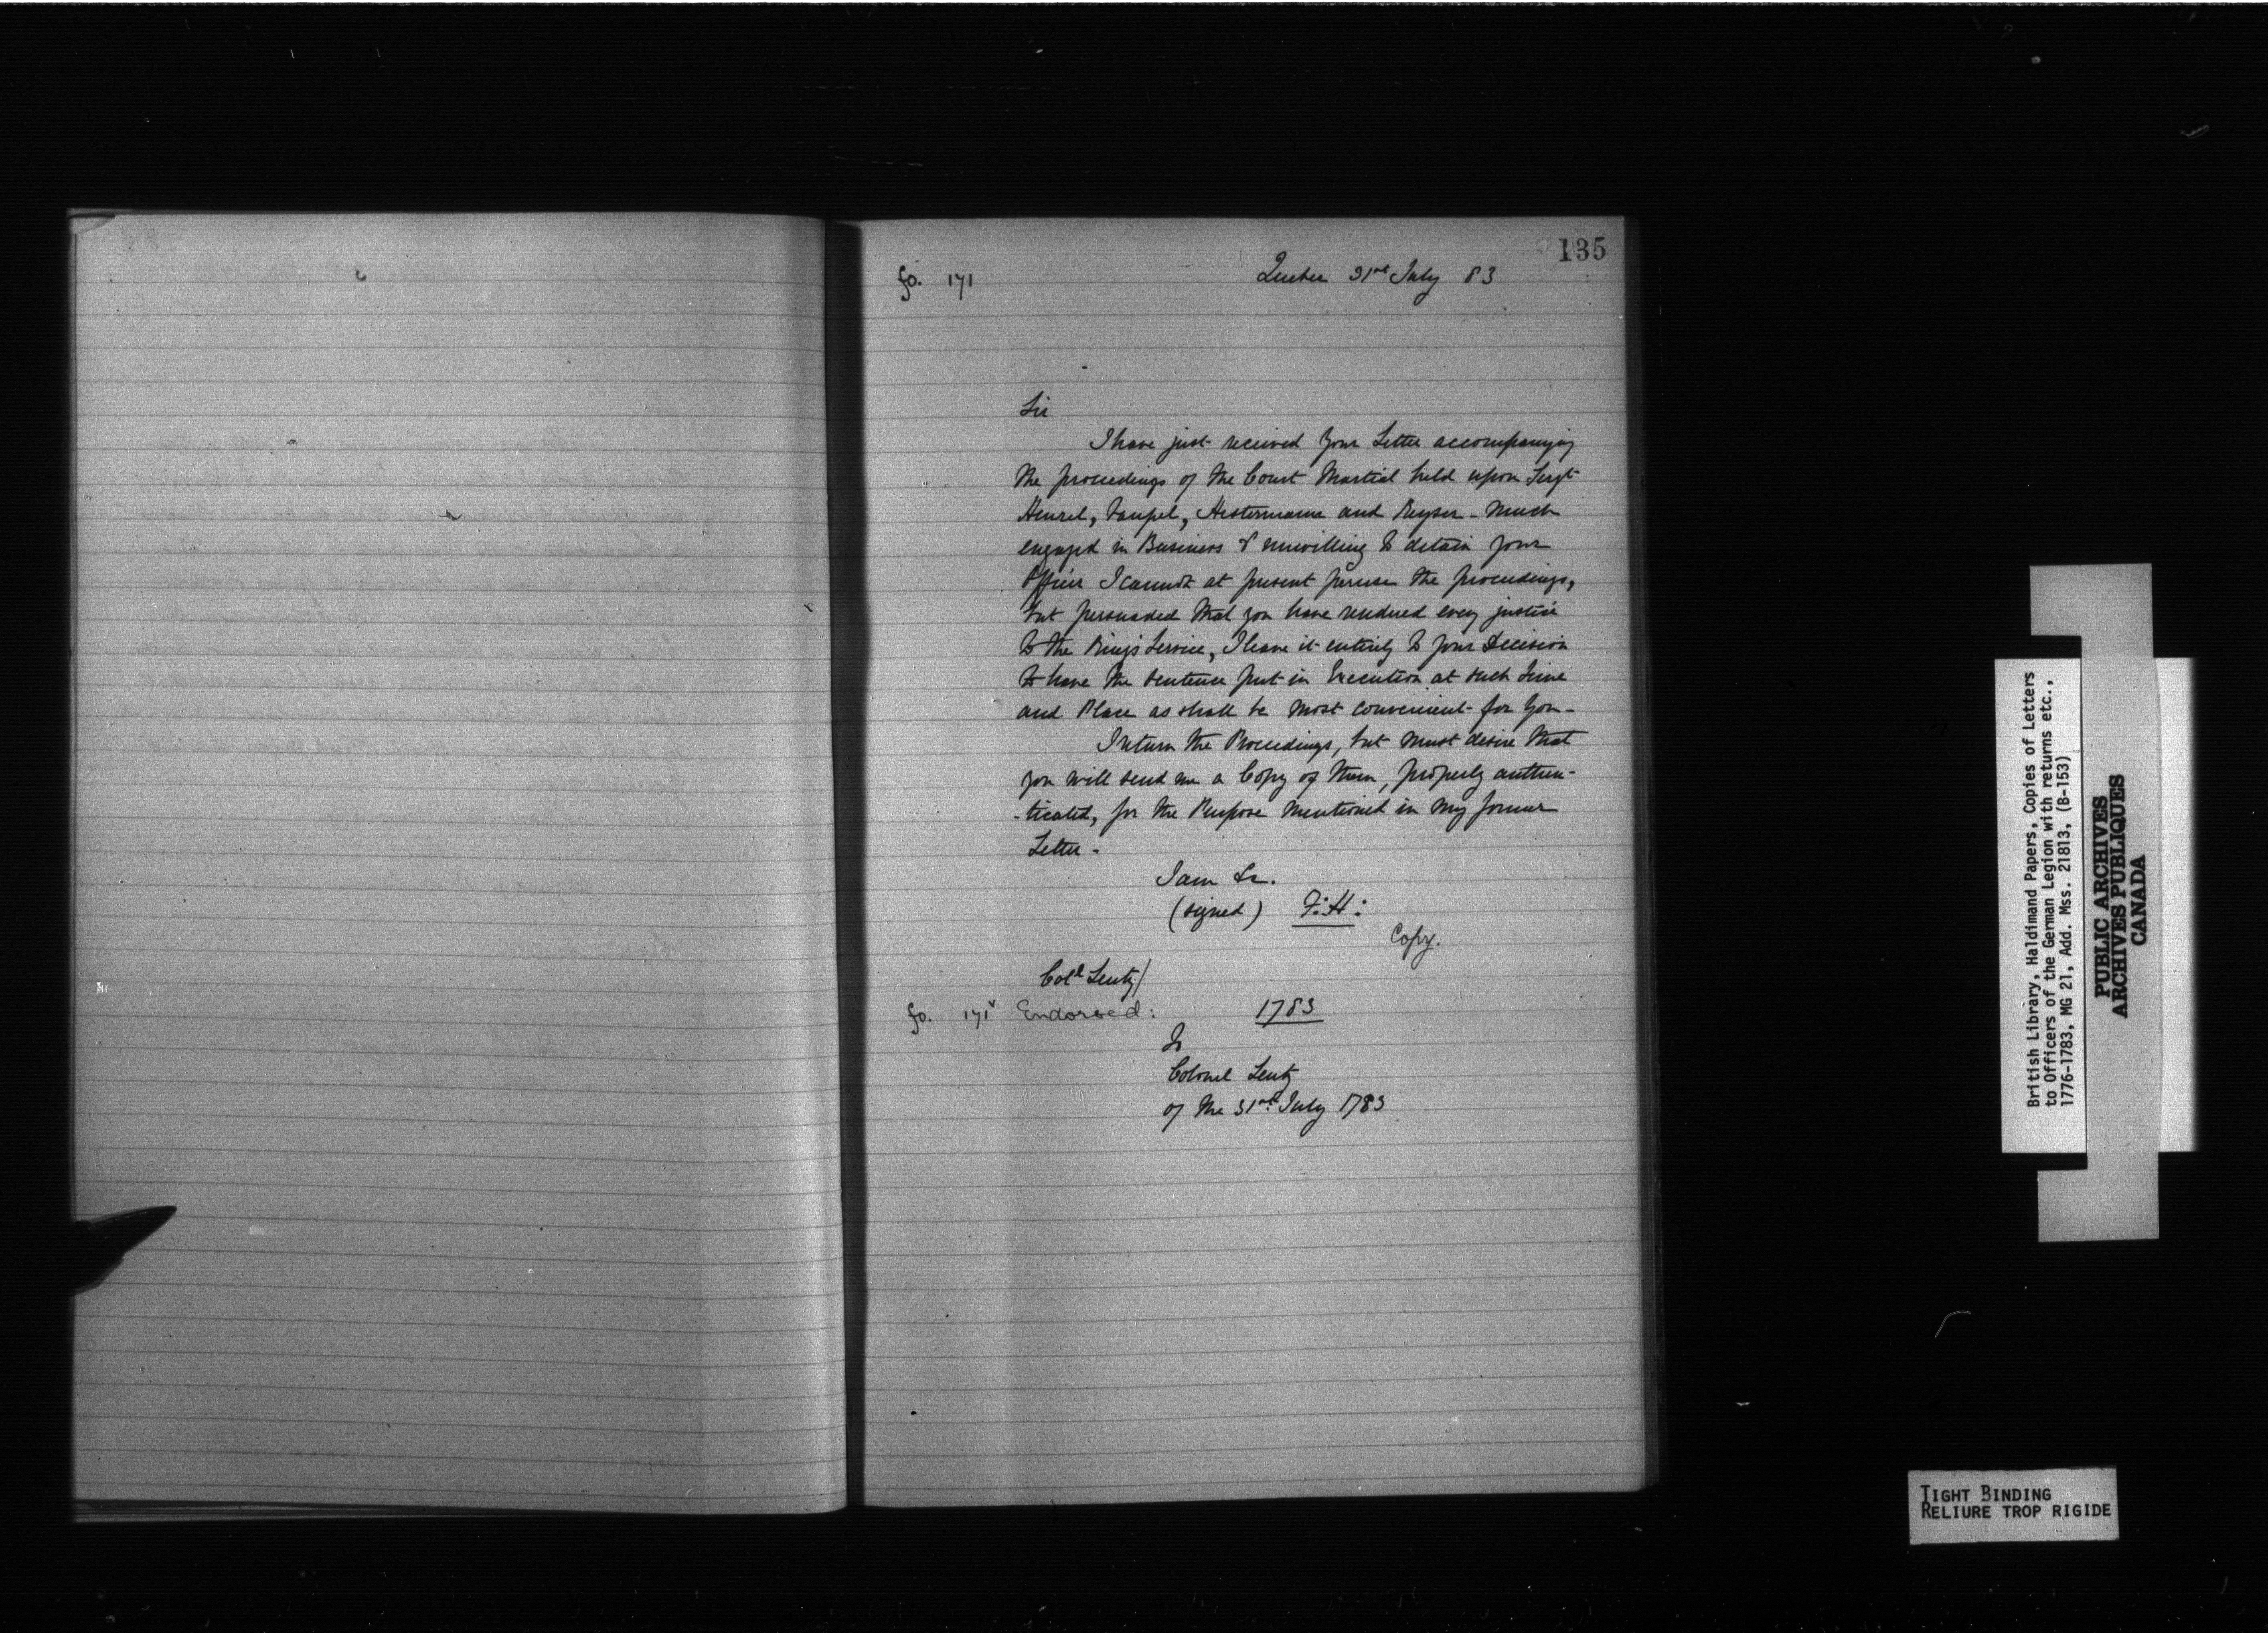 135
fo. 171 Quebec 31st July 83
Sir
I have just received Your Letter accompanying
the proceedings of the Court Martial held upon Sergt
Hensel, Taupel, Hestermann and Keyser - Much
engaged in Business & unwilling to detain your
Officer I cannot at present peruse the proceedings,
but persuaded that you have rendered every justice
to the King's Service, I leave it entirely to your Decision
to have the Sentence put in Execution at such Time
and Place as shall be most convenient for You -
I return the Proceedings, but must desire that
you will send me a Copy of them, properly authen-
-ticated, for the Purpose mentioned in my former
Letter -
I am &c.
(signed) F:H:
Copy.
Coll Lentz/
fo. 171v Endorsed: 1783
To
Colonel Lentz
of the 31st July 1783
British Library, Haldimand Papers, Copies of Letters
to Officers of the German Legion with returns etc.,
1776-1783, MG 21, Add. Mss. 21813, (B-153)
PUBLIC ARCHIVES
ARCHIVES PUBLIQUES
CANADA
TIGHT BINDING
RELIURE TROP RIGIDE